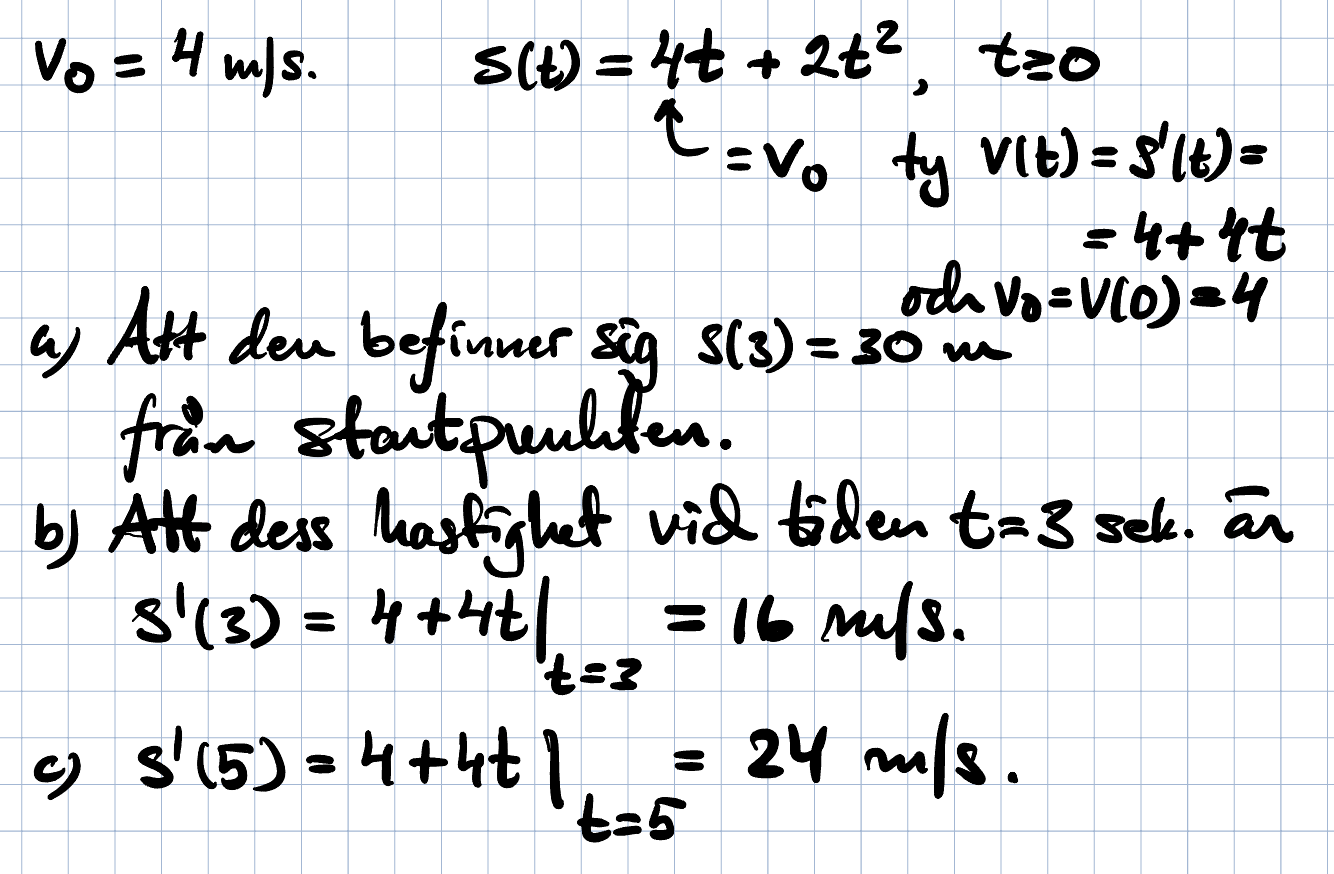 v₀ = 4 m/s. s(t) = 4t + 2t², t≥0
= v₀ ty v(t) = s'(t) =
= 4 + 4t
och v₀ = v(0) = 4
a) Att den befinner sig s(3) = 30 m
från startpunkten.
b) Att dess hastighet vid tiden t=3 sek. är
s'(3) = 4 + 4t|t=3 = 16 m/s.
c) s'(5) = 4 + 4t|t=5 = 24 m/s.